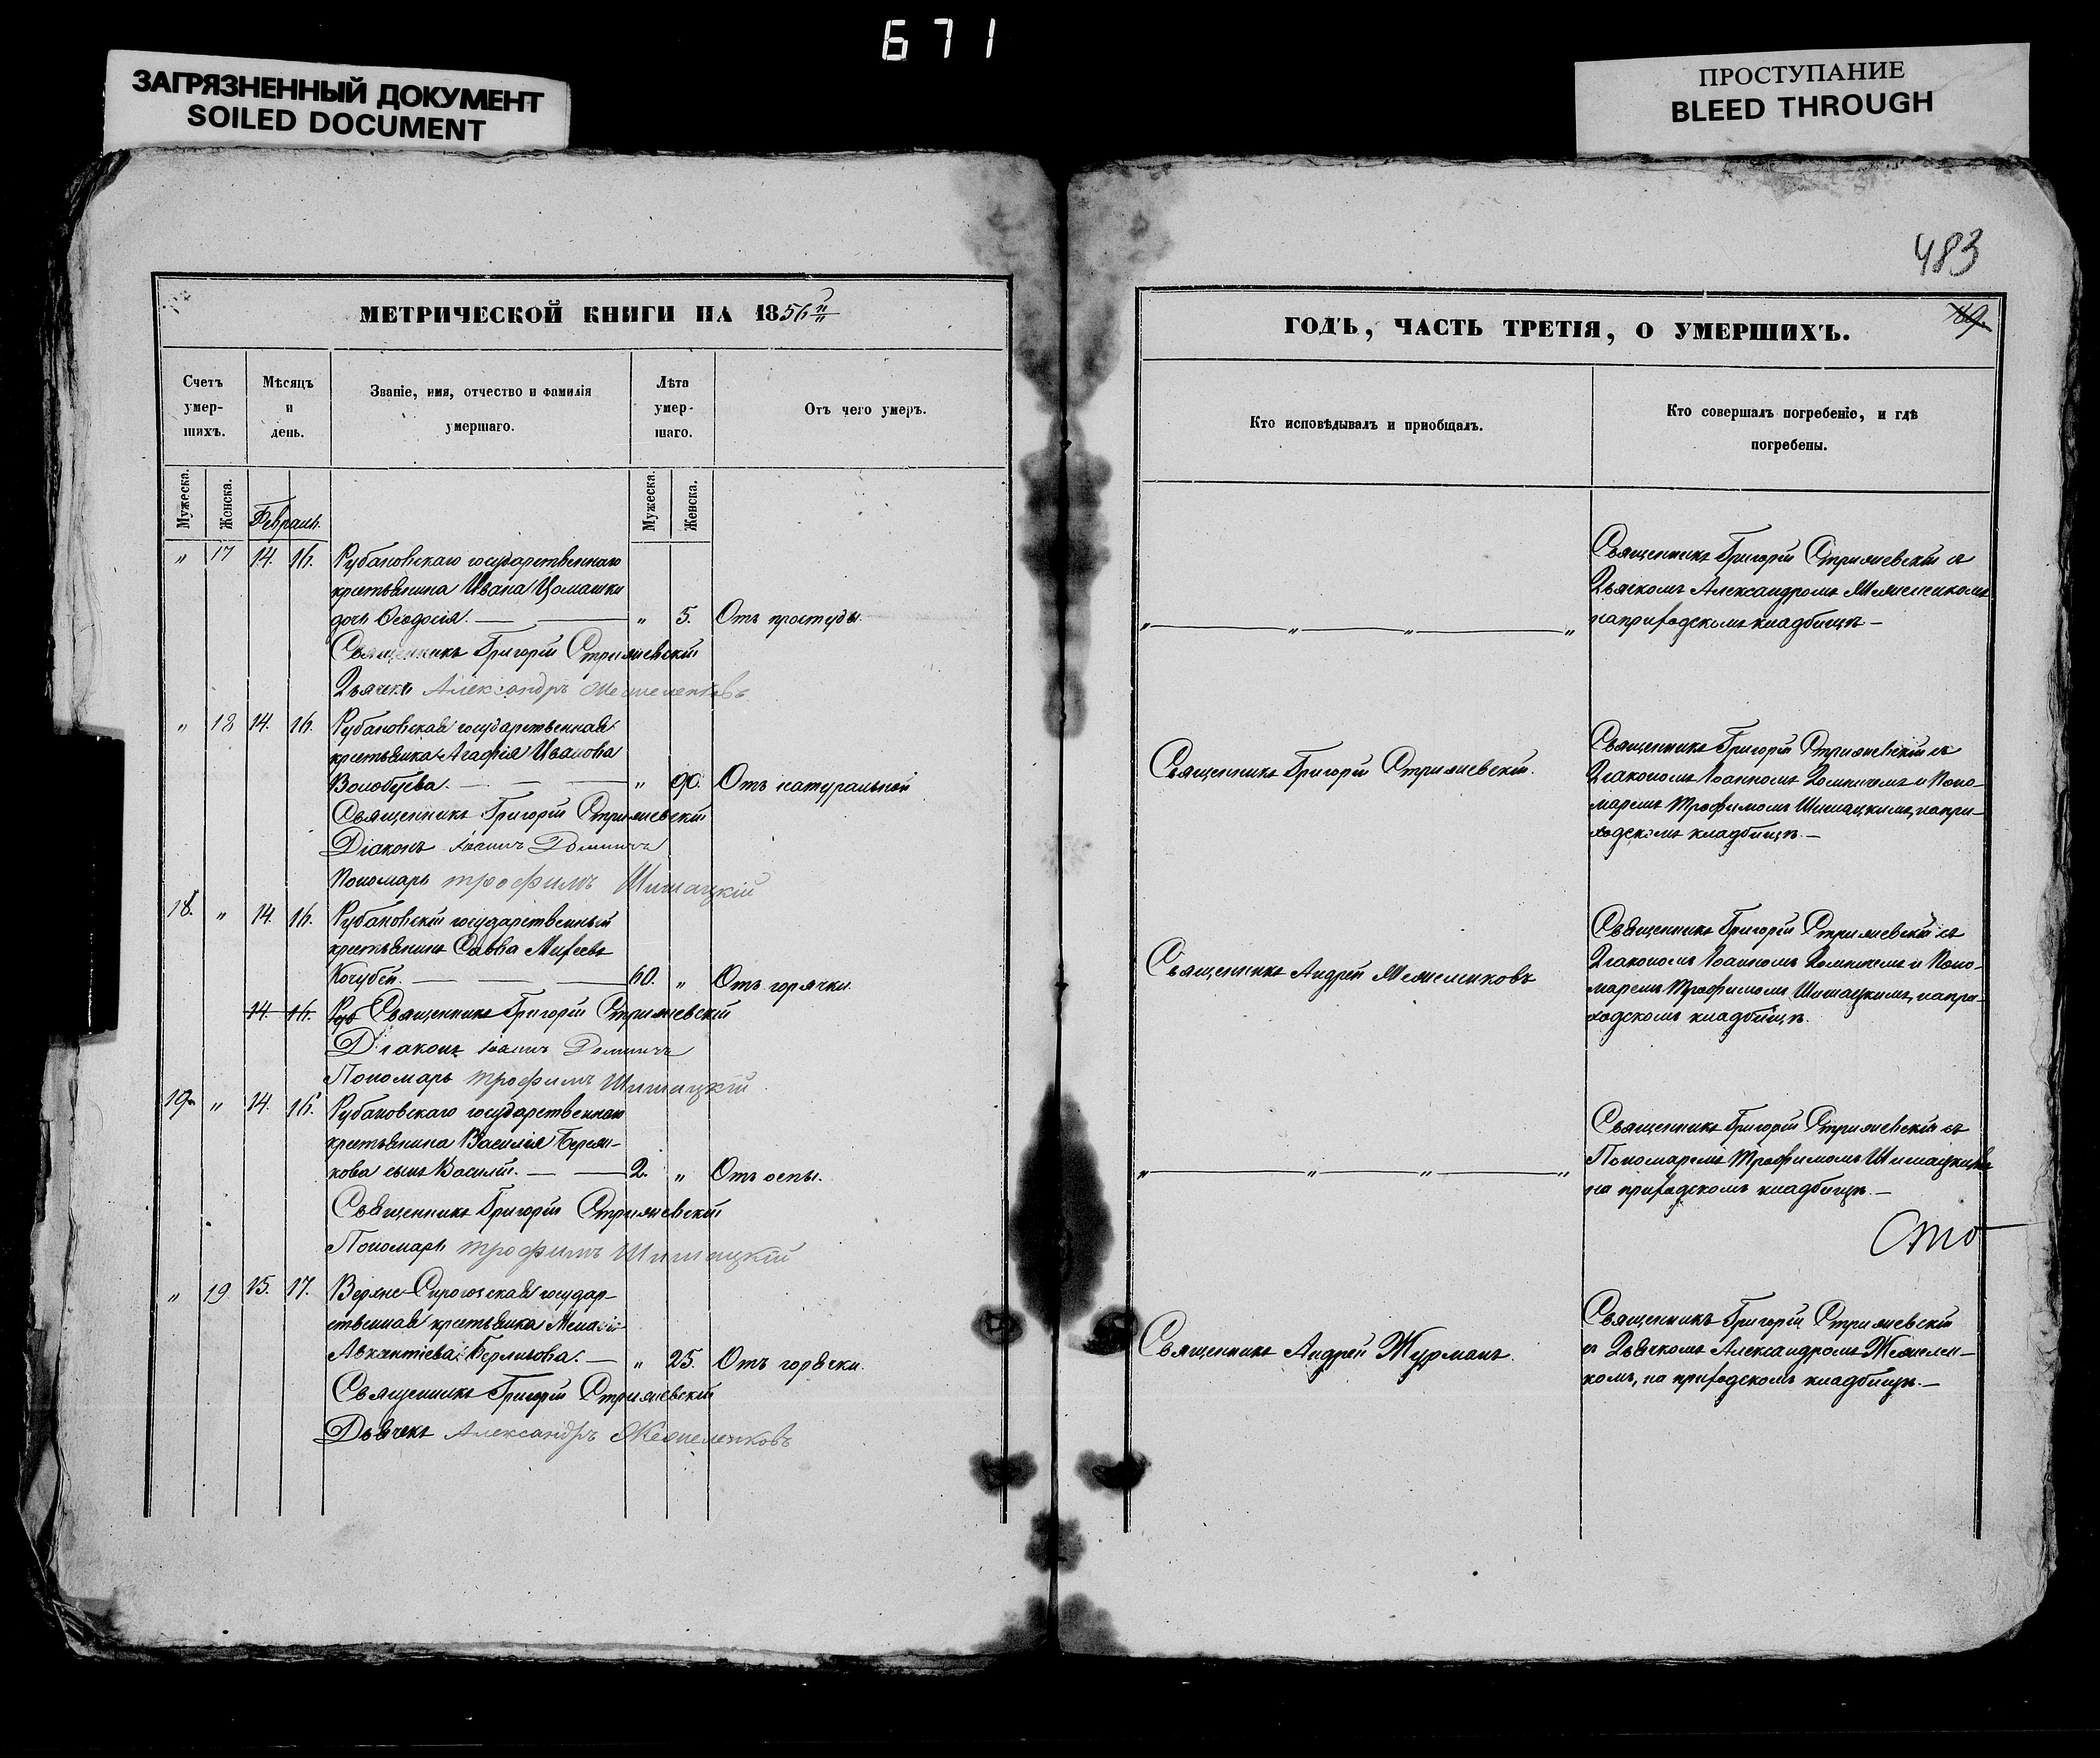 671
ЗАГРЯЗНЕННЫЙ ДОКУМЕНТ
SOILED DOCUMENT
ПРОСТУПАНИЕ
BLEED THROUGH
483
МЕТРИЧЕСКОЙ КНИГИ НА 1856й
Счетъ умер- шихъ.
Мѣсяцъ и день.
Званіе, имя, отчество и фамилія умершаго.
Лѣта умер- шаго.
Отъ чего умеръ.
Мужеска.
Женска.
Февраль.
Мужеска.
Женска.
" 17 14. 16. Рубановскаго государственнаго
крестьянина Ивана
дочь Ѳеодосія. — " 5. Отъ простуды.
Священникъ Григорій Стрижевскій
Дьячекъ Александръ
" 18 14. 16. Рубановская государственная
крестьянка Агафія Иванова
Волобуева. — " 90. Отъ натуральной
Священникъ Григорій Стрижевскій
Діаконъ Іоаннъ
Пономарь Трофимъ Шишацкій
18. " 14. 16. Рубановскій государственный
крестьянинъ Савва Михеевъ
Кочубей. — 60. " Отъ горячки.
14. 16. Руб Священникъ Григорій Стрижевскій
Діаконъ Іоаннъ
Пономарь Трофимъ Шишацкій
19. " 14. 16. Рубановскаго государственнаго
крестьянина Василія
сынъ Василій. — 2. " Отъ оспы.
Священникъ Григорій Стрижевскій
Пономарь Трофимъ Шишацкій
" 19 15. 17. государ-
ственная крестьянка
— " 25. Отъ горячки.
Священникъ Григорій Стрижевскій
Дьячекъ Александръ
ГОДЪ, ЧАСТЬ ТРЕТІЯ, О УМЕРШИХЪ.
Кто исповѣдывалъ и приобщалъ.
Кто совершалъ погребеніе, и гдѣ погребены.
Священникъ Григорій Стрижевскій съ
Дьячкомъ Александромъ
на приходскомъ кладбищѣ —
Священникъ Григорій Стрижевскій.
Священникъ Григорій Стрижевскій съ
Діакономъ Іоанномъ и Поно-
маремъ Трофимомъ Шишацкимъ, на при-
ходскомъ кладбищѣ. —
Священникъ Андрей
Священникъ Григорій Стрижевскій съ
Діакономъ Іоанномъ и Поно-
маремъ Трофимомъ Шишацкимъ, на при-
ходскомъ кладбищѣ.
Священникъ Григорій Стрижевскій съ
Пономаремъ Трофимомъ Шишацкимъ
на приходскомъ кладбищѣ. —
Священникъ Андрей Журманъ.
Священникъ Григорій Стрижевскій
съ Дьячкомъ Александромъ
на приходскомъ кладбищѣ. —